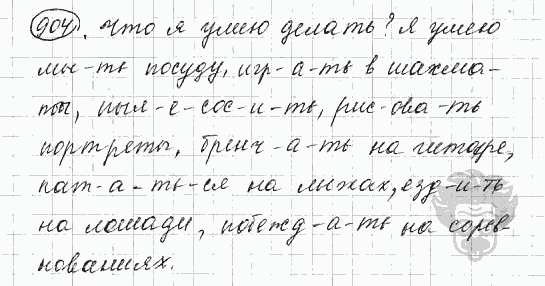 904. Что я умею делать? Я умею
мы-ть посуду, игр-а-ть в шахма-
ты, пыл-е-сос-и-ть, рис-ова-ть
портреты, бренч-а-ть на гитаре,
кат-а-ть-ся на лыжах, езд-и-ть
на лошади, побежд-а-ть на сорев-
нованиях.